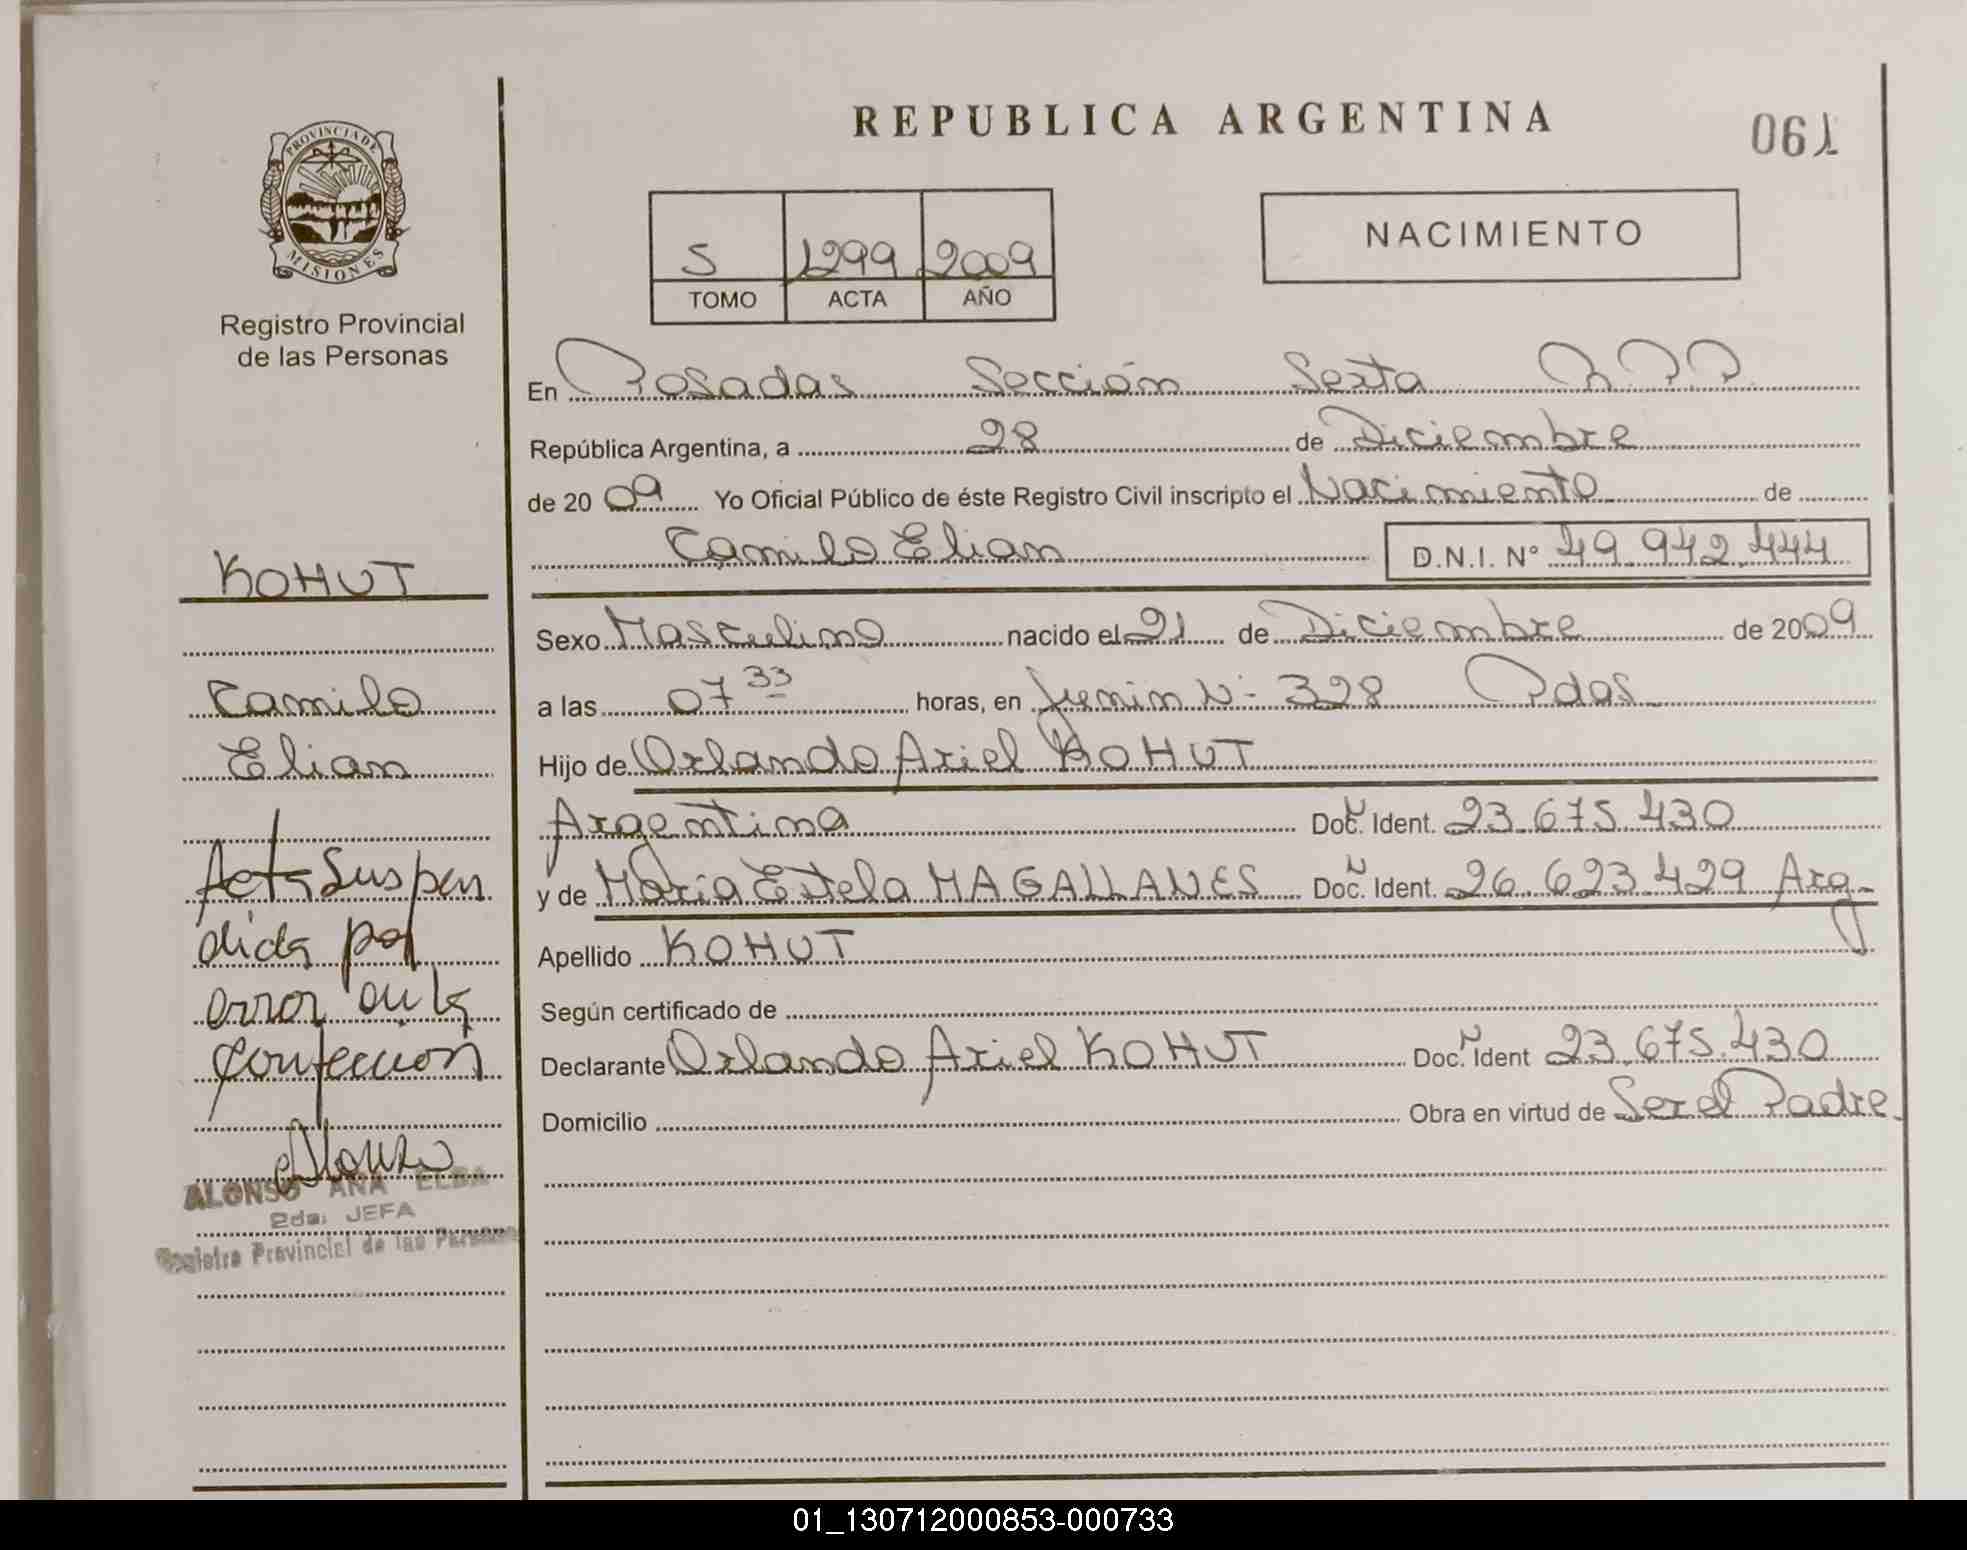 REPUBLICA ARGENTINA
061
PROVINCIA DE
MISIONES
Registro Provincial
de las Personas
5 1299 2009
TOMO ACTA AÑO
NACIMIENTO
En Posadas Sección Sexta R.P.P.
República Argentina, a 28 de Diciembre
de 2009 Yo Oficial Público de éste Registro Civil inscripto el Nacimiento de
Camilo Elian D.N.I. Nº 49.942.444
Sexo Masculino nacido el 21 de Diciembre de 2009
a las 07 33 horas, en Junin Nº 328 Pdas
Hijo de Orlando Ariel KOHUT
Argentina Doc. Ident. 23.675.430
y de Maria Estela MAGALLANES Doc. Ident. 26.623.429 Arg.
Apellido KOHUT
Según certificado de
Declarante Orlando Ariel KOHUT Doc. Ident 23.675.430
Domicilio Obra en virtud de Ser el Padre.
KOHUT
Camilo
Elian
Acta Suspen
dida por
error en la
confeccion
Alonso
ALONSO ANA ELBA
2da. JEFA
Registro Provincial de las Personas
01_130712000853-000733